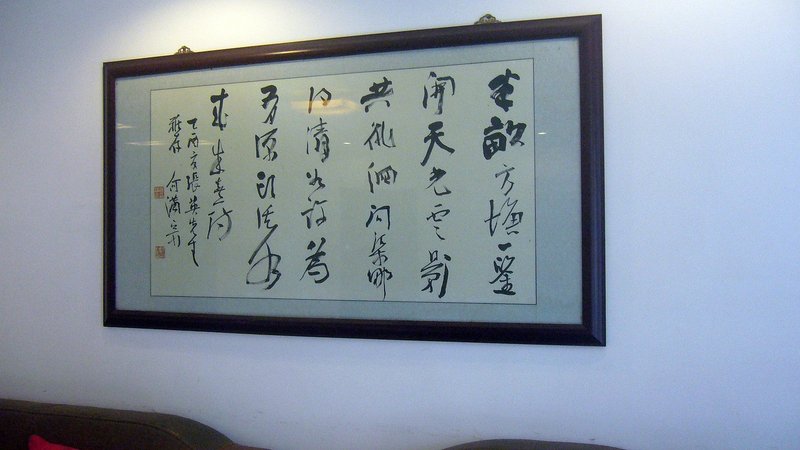 半畝方塘一鑒
開天光雲影
共徘徊問渠那
得清如許為
有源頭活水
來朱熹詩
乙酉夏張英先生
雅存 何滿宗